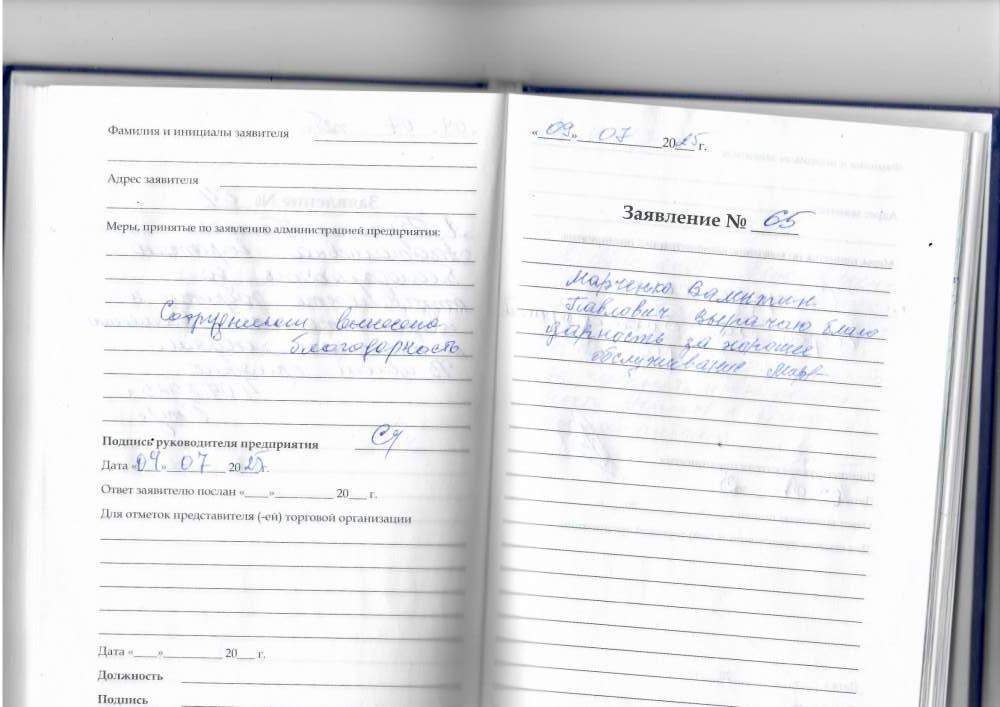 Фамилия и инициалы заявителя
Адрес заявителя
Меры, принятые по заявлению администрацией предприятия:
Сотрудникам вынесена
благодарность
Подпись руководителя предприятия
Дата «04» 07 2025г.
Ответ заявителю послан «____»__________ 20___ г.
Для отметок представителя (-ей) торговой организации
Дата «____»__________ 20___ г.
Должность
Подпись
«09» 07 2025 г.
Заявление № 65
Марченко Валентин
Павлович выражаю благо
дарность за хорошее
обслуживание